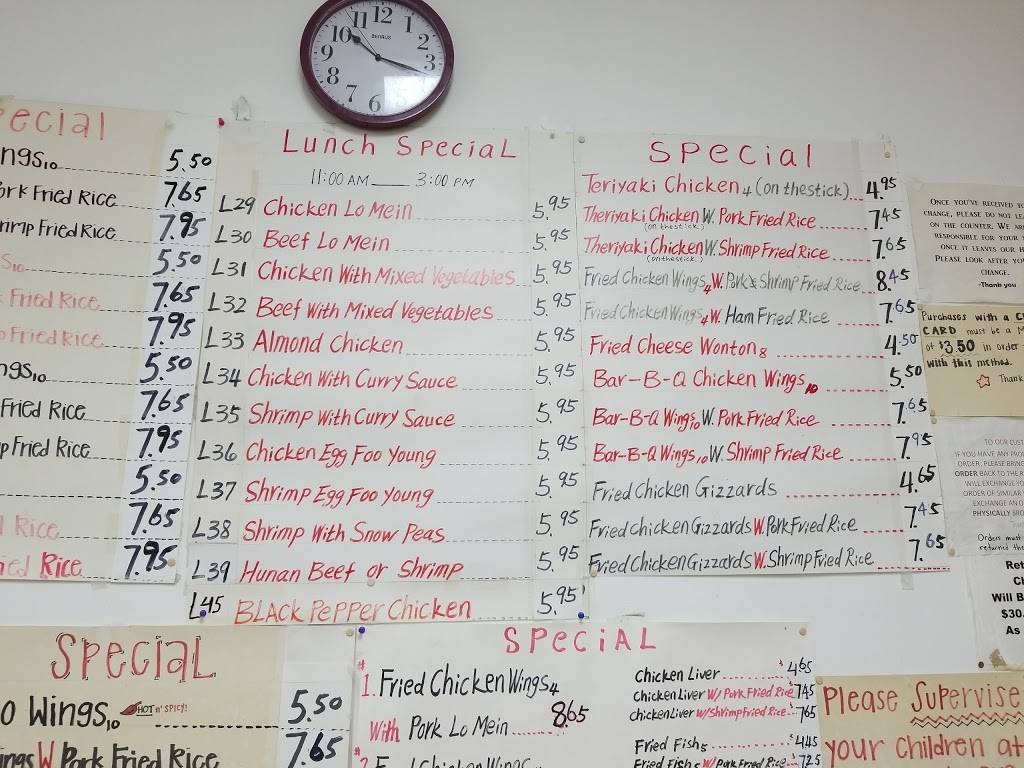 12 1 2 3 6 7 8 10
Special
5.50
Fried Rice 7.65
Fried Rice 7.95
5.50
Fried Rice 7.65
Fried Rice 7.95
5.50
Fried Rice 7.65
Fried Rice 7.95
5.50
Rice 7.65
Rice 7.95
Lunch Special
11:00 AM 3:00 PM
L29 Chicken Lo Mein 5.95
L30 Beef Lo Mein 5.95
L31 Chicken With Mixed Vegetables 5.95
L32 Beef With Mixed Vegetables 5.95
L33 Almond Chicken 5.95
L34 Chicken With Curry Sauce 5.95
L35 Shrimp With Curry Sauce 5.95
L36 Chicken Egg Foo Young 5.95
L37 Shrimp Egg Foo Young 5.95
L38 Shrimp With Snow Peas 5.95
L39 Hunan Beef or Shrimp 5.95
L45 Black Pepper Chicken 5.95
Special
Teriyaki Chicken 4 (on thestick) 4.95
Theriyaki Chicken W. Pork Fried Rice 7.45
(on thestick)
Theriyaki Chicken W. Shrimp Fried Rice 7.65
(on thestick)
Fried Chicken Wings 4 W. Pork & Shrimp Fried Rice 8.45
Fried Chicken Wings 4 W. Ham Fried Rice 7.65
Fried Cheese Wonton 8 4.50
Bar-B-Q Chicken Wings 10 5.50
Bar-B-Q Wings 10 W. Pork Fried Rice 7.65
Bar-B-Q Wings 10 W. Shrimp Fried Rice 7.95
Fried Chicken Gizzards 4.65
Fried Chicken Gizzards W. Pork Fried Rice 7.45
Fried Chicken Gizzards W. Shrimp Fried Rice 7.65
Once you've received
change, please do not
on the counter. We
responsible for your
once it leaves our
Please look after
change.
-Thank you
Purchases with a
card must be a
of $3.50 in order
with this method.
Thank
To our
If you have any
order, please
order back to the
will exchange
order of similar
exchange
physically
Orders must
returned
Will
$30.
As
Special
Wings 10 Hot n' Spicy! 5.50
W Pork Fried Rice 7.65
Special
#1. Fried Chicken Wings 4
With Pork Lo Mein 8.65
Chicken Liver $4.65
Chicken Liver W/ Pork Fried Rice 7.45
Chicken Liver W/ Shrimp Fried Rice 7.65
Fried Fish 5 $4.45
Fried Fish 5 W/ Pork Fried Rice 7.25
Please Supervise
your children at